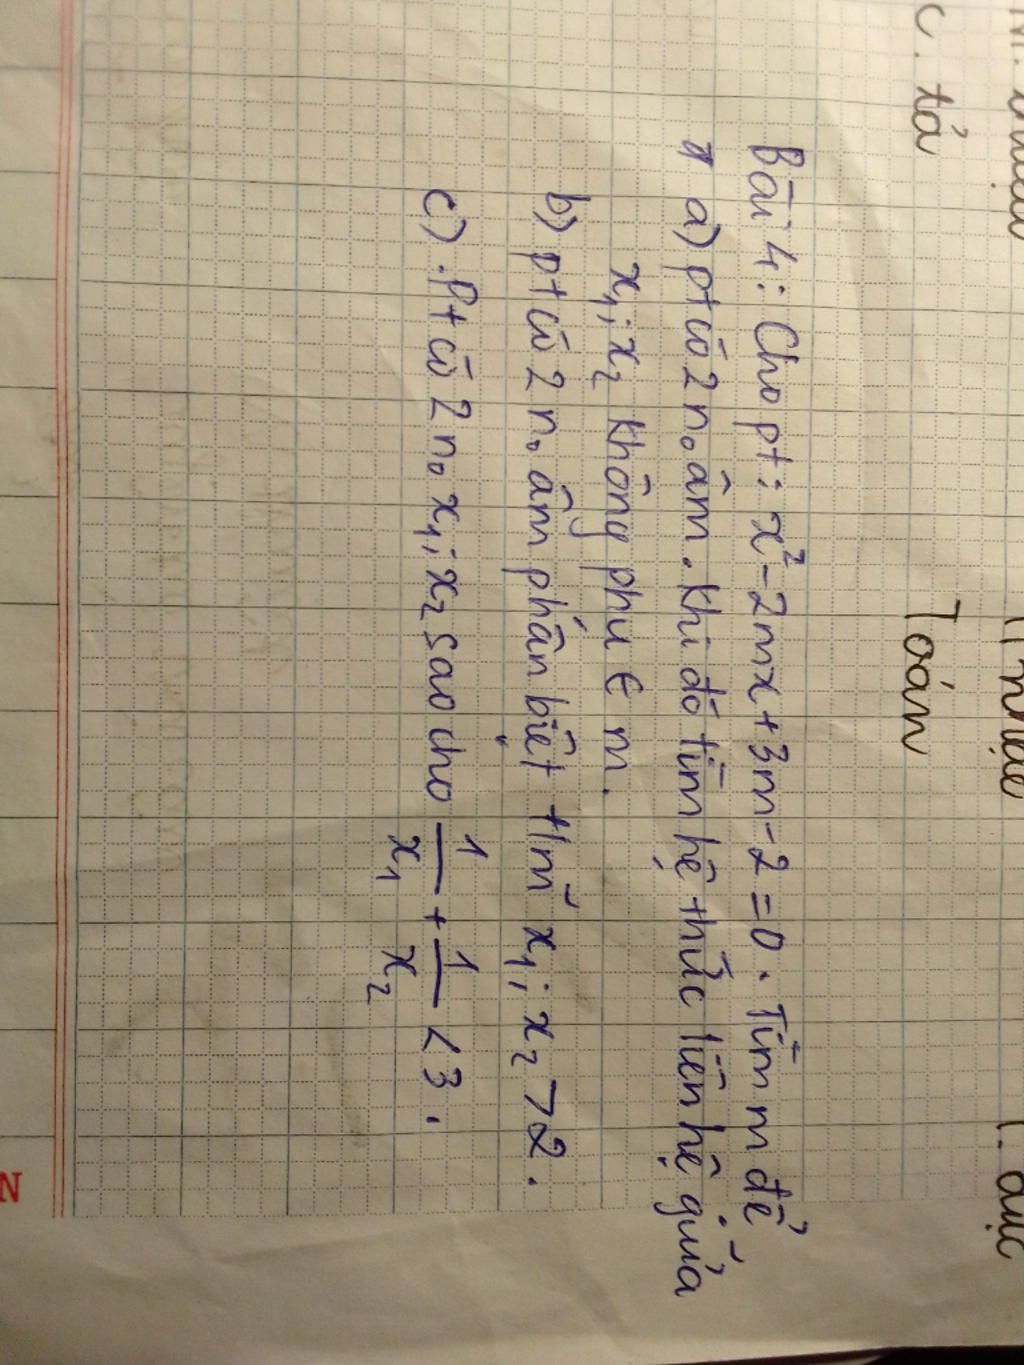 c. tả
Toán
Bài 4: Cho pt: x² - 2mx + 3m - 2 = 0. Tìm m để
a) pt có 2 n₀ âm. Khi đó tìm hệ thức liên hệ giữa
x₁; x₂ không phụ ∈ m.
b) pt có 2 n₀ âm phân biệt t/m x₁; x₂ > 2.
c) . Pt có 2 n₀ x₁; x₂ sao cho 1/x₁ + 1/x₂ < 3.
N